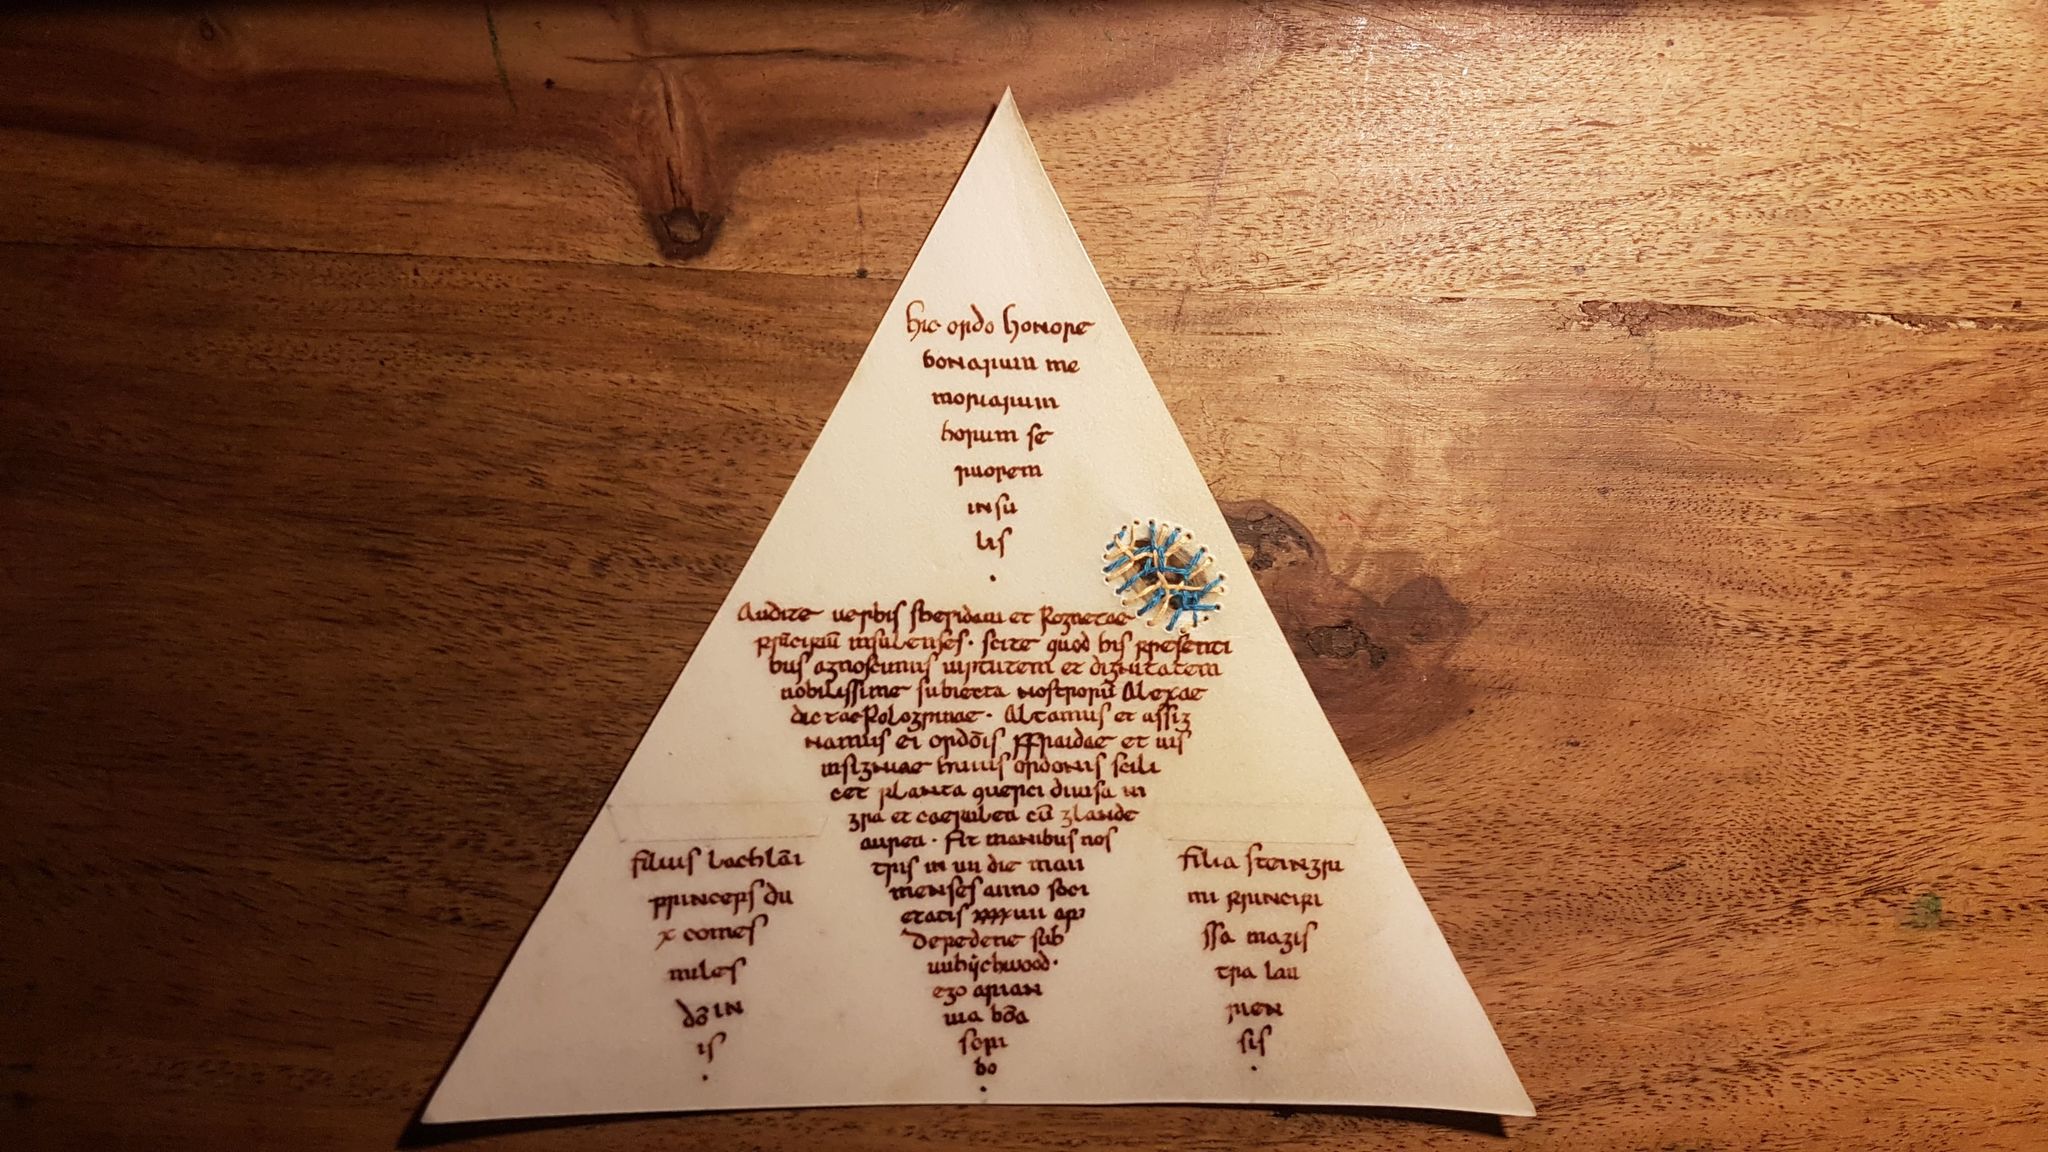 hic ordo honore
bonarum me
moriarum
horum se
ruorem
insu
lis
.
Audite uerbis sheridani et Rognetae
pricipiu insulenses · scite quod his presenti
bus agnoscimus uirtutem et dignitatem
nobilissime subiecta nostroru Alexae
dictae Pologrinae · Altamus et assig
namus ei ordois ffraidae et uis
insigniae huius ordonis scili
cet planta querci diuisa in
gra et caerulea cu glande
aurea · Fit manibus nos
tris in uii die maii
menses anno soci
etatis xxxxuiii ap
depedene sub
uuhijchwood ·
ego arian
uia boa
scri
bo
.
filius lachlai
princeps du
x comes
miles
doin
is
.
filia steingri
mi principi
ssa magis
tra lau
rien
sis
.